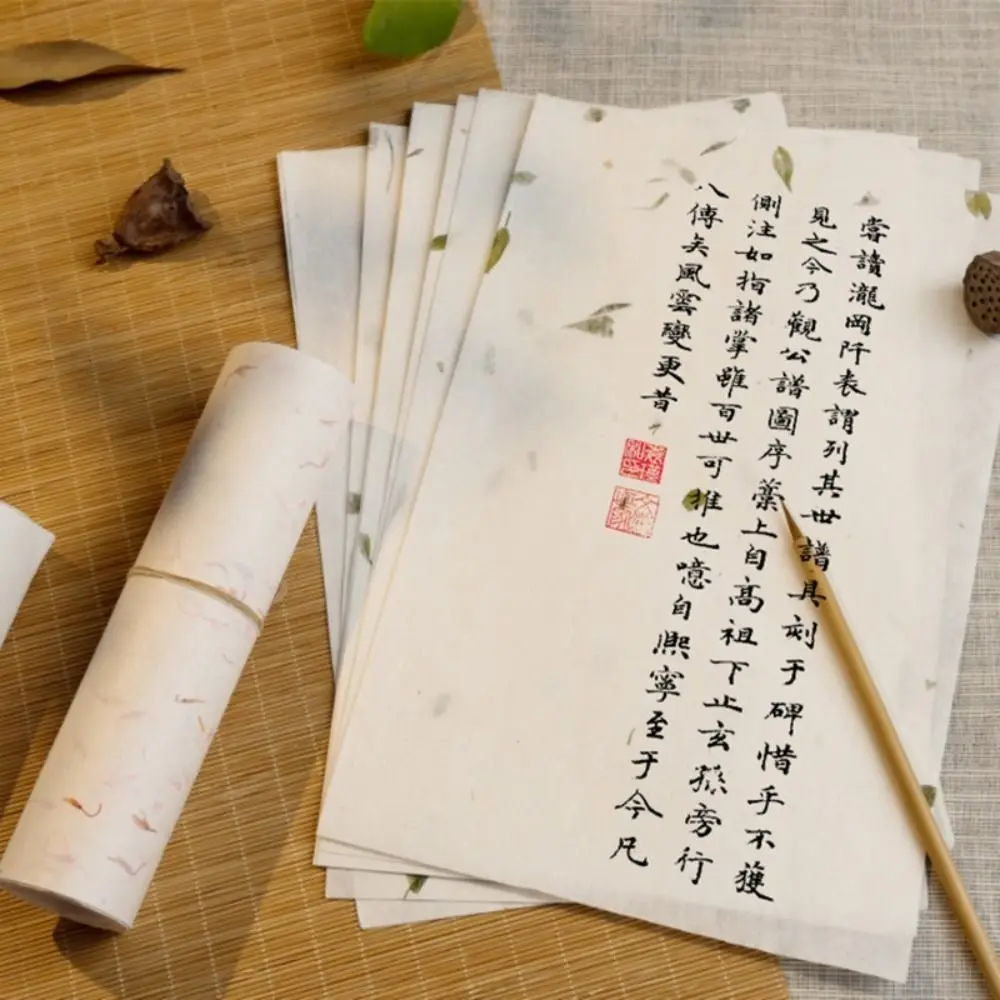 嘗讀瀧岡阡表謂列其世譜具刻于碑惜乎不獲
見之今乃觀公譜圖序藁上自高祖下止玄孫旁行
側注如指諸掌雖百世可推也噫自熙寧至于今凡
八傳矣風雲變更昔